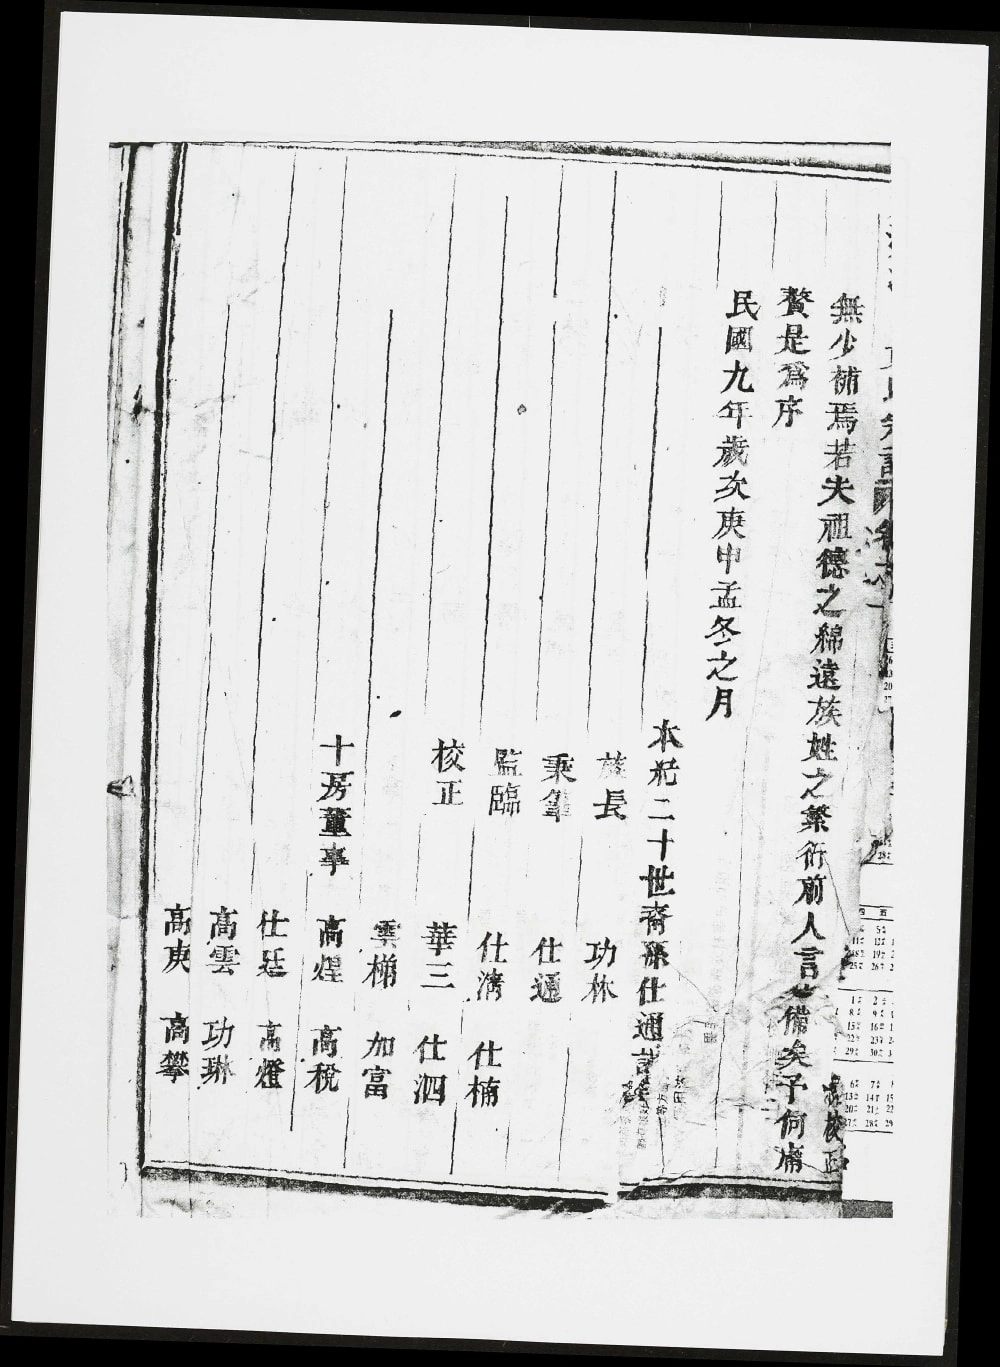 無少補焉若夫祖德之綿遠族姓之繁衍前人言之備矣予何庸
贅是爲序
民國九年歲次庚申孟冬之月
本祀二十世裔孫仕通謹
族長 功林
秉筆 仕通
監臨 仕清 仕楠
校正 華三 仕泗
雲梯 加富
十房董事 高煌 高稅
仕廷 高燈
高雲 功琳
高庚 高攀